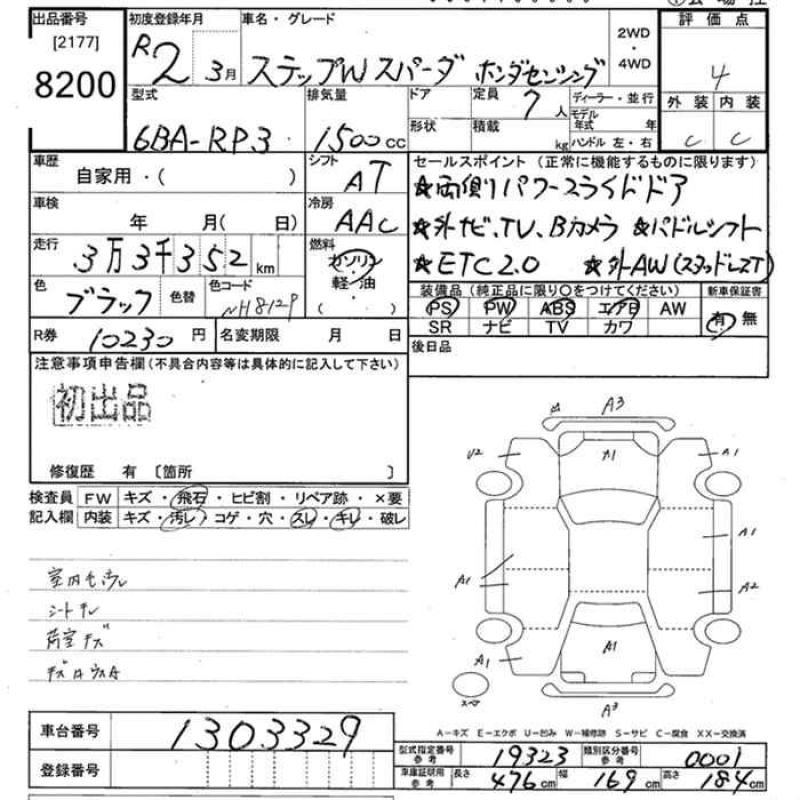 出品番号 初度登録年月 車名・グレード 評価点
[2177]
8200
R2 3月 ステップW スパーダ ホンダセンシング
2WD
・
4WD
4
型式 排気量 ドア 定員 7人 ディーラー・並行 外装 内装
形状 積載 kg モデル年式 年 ハンドル 左・右
6BA-RP3 1500cc C C
車歴 自家用・( ) シフト AT
セールスポイント (正常に機能するものに限ります)
★両側パワースライドドア
車検 年 月( 日) 冷房 AAC
★外ナビ、TV、Bカメラ ★パドルシフト
走行 3万3千352km 燃料 ガソリン・軽油・( )
★ETC2.0 ★外AW(スタッドレスT)
色 ブラック 色替 色コード NH8129
装備品 (純正品に限り○をつけてください) 新車保証書
PS PW ABS エアB AW 有 無
SR ナビ TV カワ
R券 10230円 名変期限 月 日
後日品
注意事項申告欄 (不具合内容等は具体的に記入して下さい)
初出品
修復歴 有 〔箇所 〕
検査員 FW キズ・飛石・ヒビ割・リペア跡・×要
記入欄 内装 キズ・汚レ・コゲ・穴・スレ・キレ・破レ
シートキレ
荷室キズ
A3
U2 A1 A1
A1
A1 A2
A1 A1
スペア
A3
A-キズ E-エクボ U-凹み W-補修跡 S-サビ C-腐食 XX-交換済
車台番号 1303329
登録番号
型式指定番号 参考 19323 類別区分番号 参考 0001
車庫証明用 参考 長さ 476cm 幅 169cm 高さ 184cm